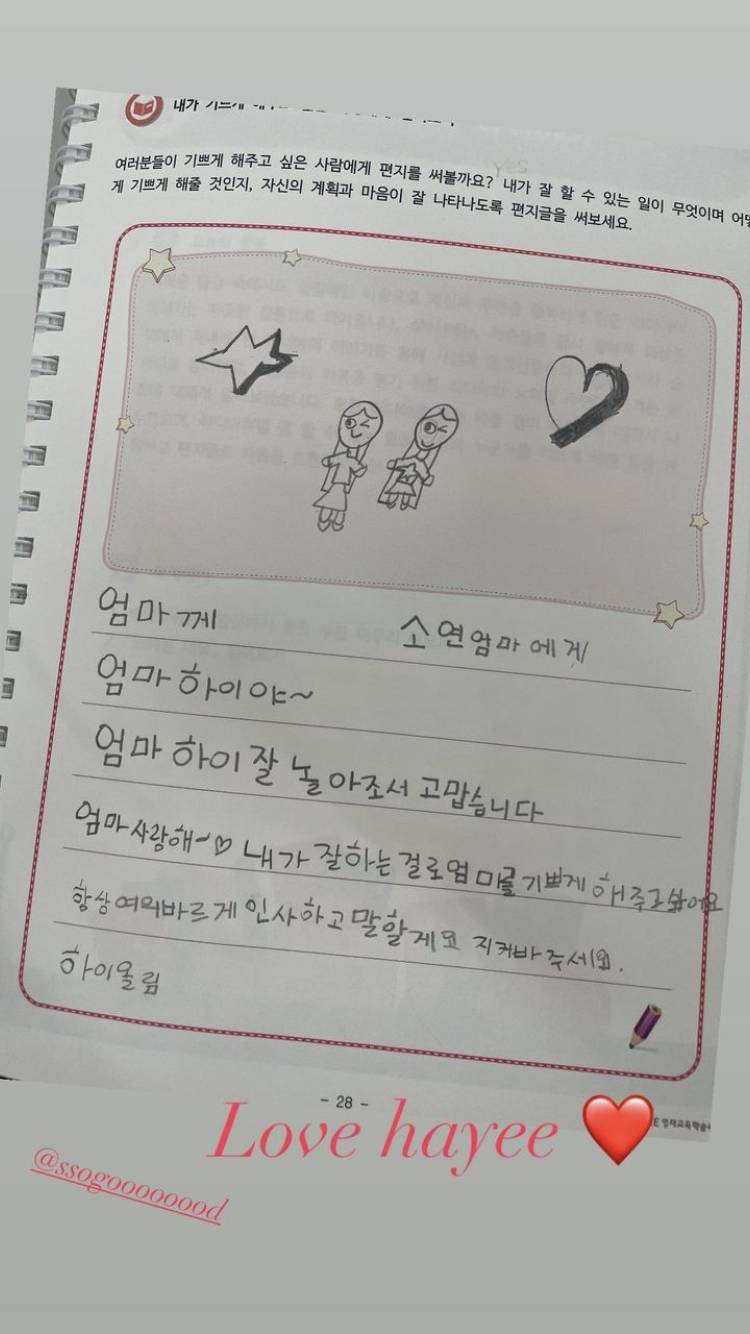 내가 기쁘게
여러분들이 기쁘게 해주고 싶은 사람에게 편지를 써볼까요? 내가 잘 할 수 있는 일이 무엇이며 어떻
게 기쁘게 해줄 것인지, 자신의 계획과 마음이 잘 나타나도록 편지글을 써보세요.
엄마께 소연엄마에게
엄마 하이야~
엄마 하이 잘 놀아조서 고맙습니다
엄마사랑해~♡ 내가 잘하는 걸로엄마를 기쁘게 해주고싶어요
항상 여의바르게 인사하고 말할게요 지켜바주세요.
하이올림
- 28 -
영재교육학술
Love hayee ❤️
@ssogooooooood